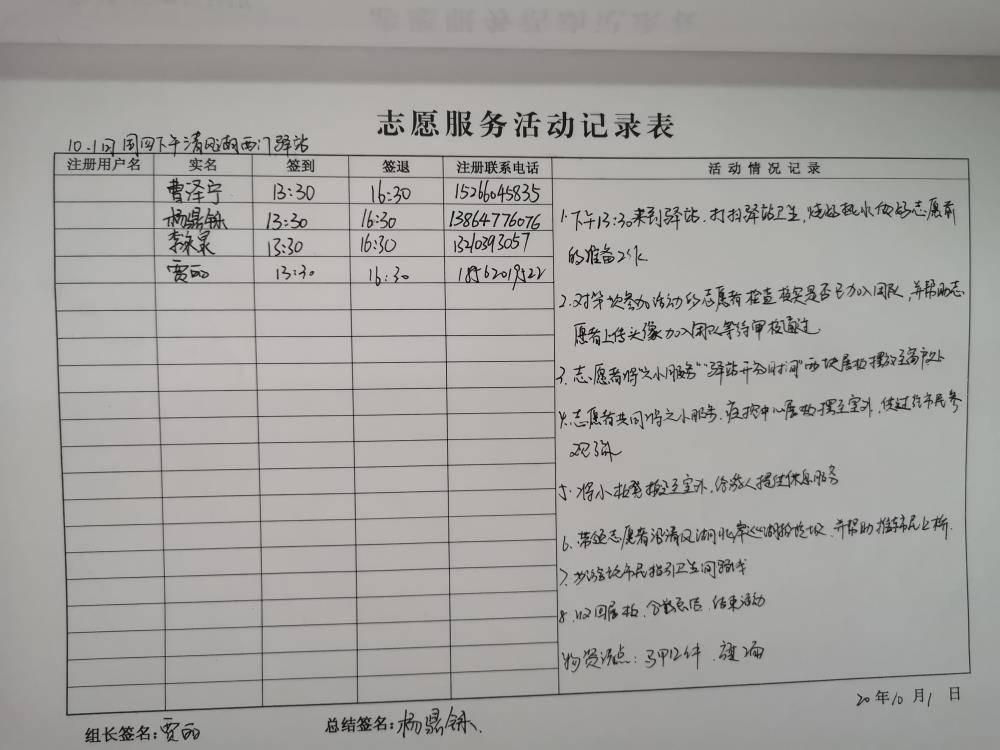 志愿服务活动记录表
10.1日 周四下午清风湖西门驿站
注册用户名 实名 签到 签退 注册联系电话 活动情况记录
曹泽宁 13:30 16:30 15266045835
杨鼎铄 13:30 16:30 13864776076
李泉 13:30 16:30 13210393057
贾丽 13:30 16:30 18562019522
1.下午13:30来到驿站,打扫驿站卫生,烧好热水做好志愿前
的准备工作
2.对首次参加活动的志愿者检查核实是否已加入团队,并帮助志
愿者上传头像加入团队等待审核通过
3.志愿者将"文小服务""驿站开放时间"两块展板摆放至窗户外
4.志愿者共同将文小服务、疫控中心展板摆至室外,供过往市民参
观了解
5.将小板凳搬至室外,给游人提供休息服务
6.带领志愿者沿清风湖北岸巡湖捡垃圾,并帮助推车市民上桥.
7.为游玩市民指引卫生间路线
8.收回展板,分散总结,结束活动
物资清点:马甲12件,
20 年 10 月 1 日
组长签名:贾丽
总结签名:杨鼎铄